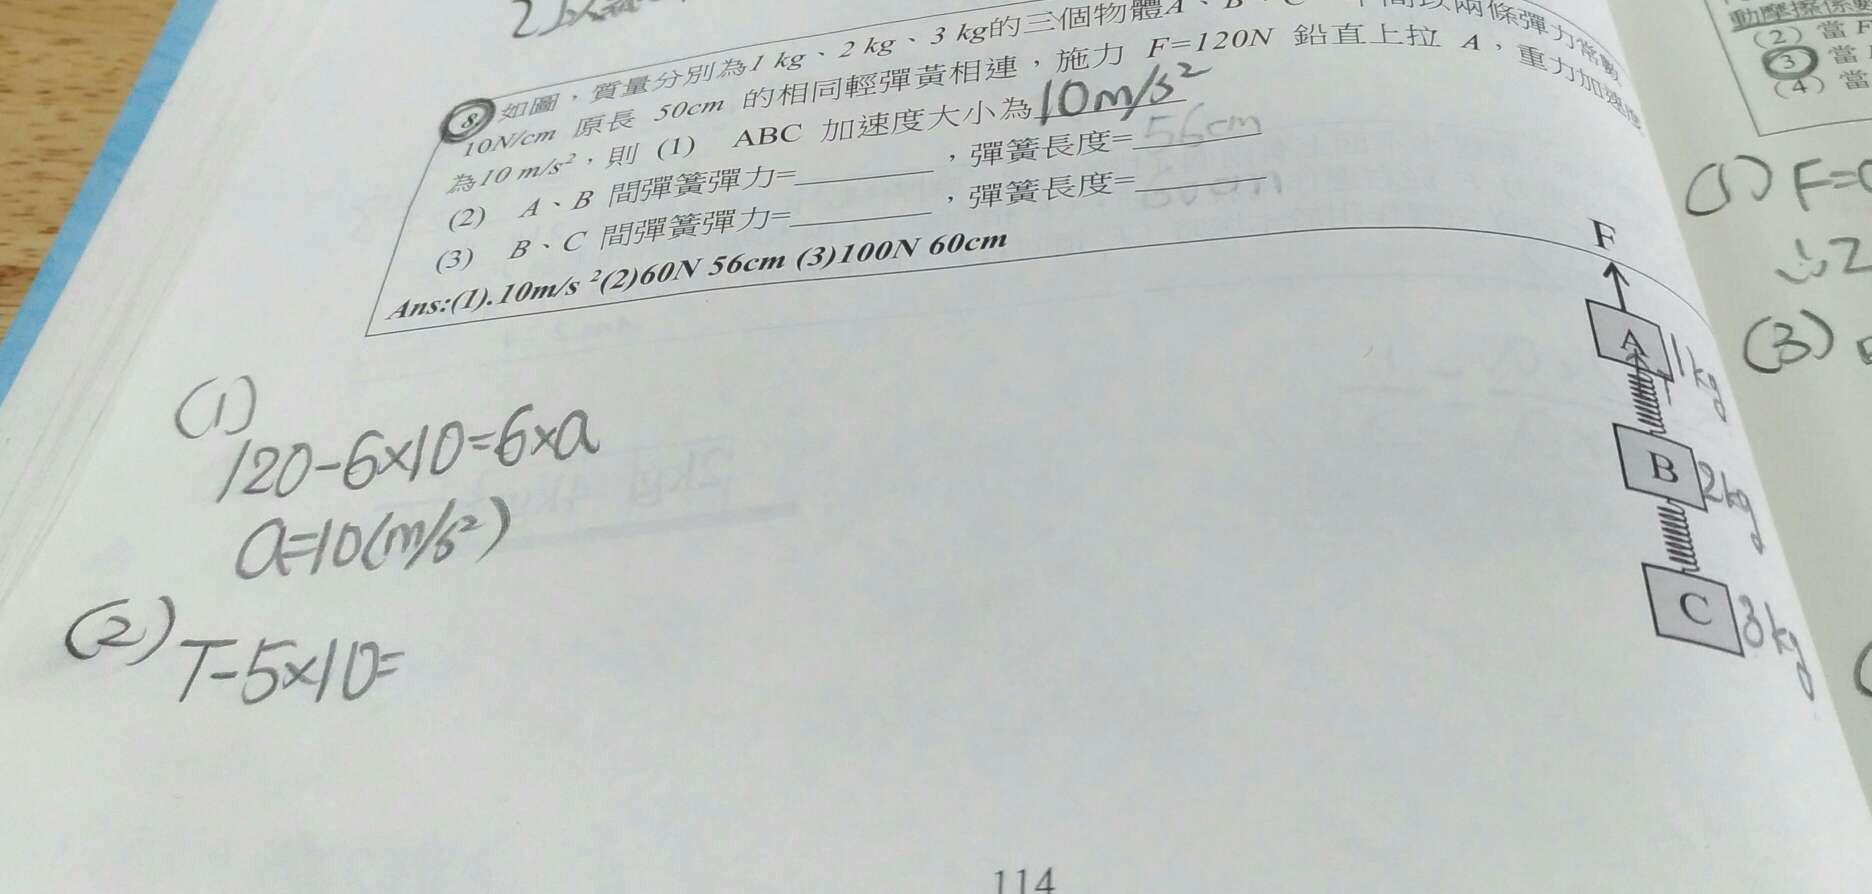 8. 如圖，質量分別為1 kg、2 kg、3 kg的三個物體A、B、 兩條彈力常數
10N/cm 原長 50cm 的相同輕彈黃相連，施力 F=120N 鉛直上拉 A，重力加速度
為10 m/s²，則 (1) ABC 加速度大小為10m/s²
(2) A、B 間彈簧彈力=______，彈簧長度=56cm
(3) B、C 間彈簧彈力=______，彈簧長度=60cm
Ans:(1).10m/s ²(2)60N 56cm (3)100N 60cm
(1)
120-6×10=6×a
a=10(m/s²)
(2) T-5×10=
F
A 1kg
B 2kg
C 3kg
114
動摩擦係數
(2) 當
(3) 當
(4) 當
(1) F=
(3)